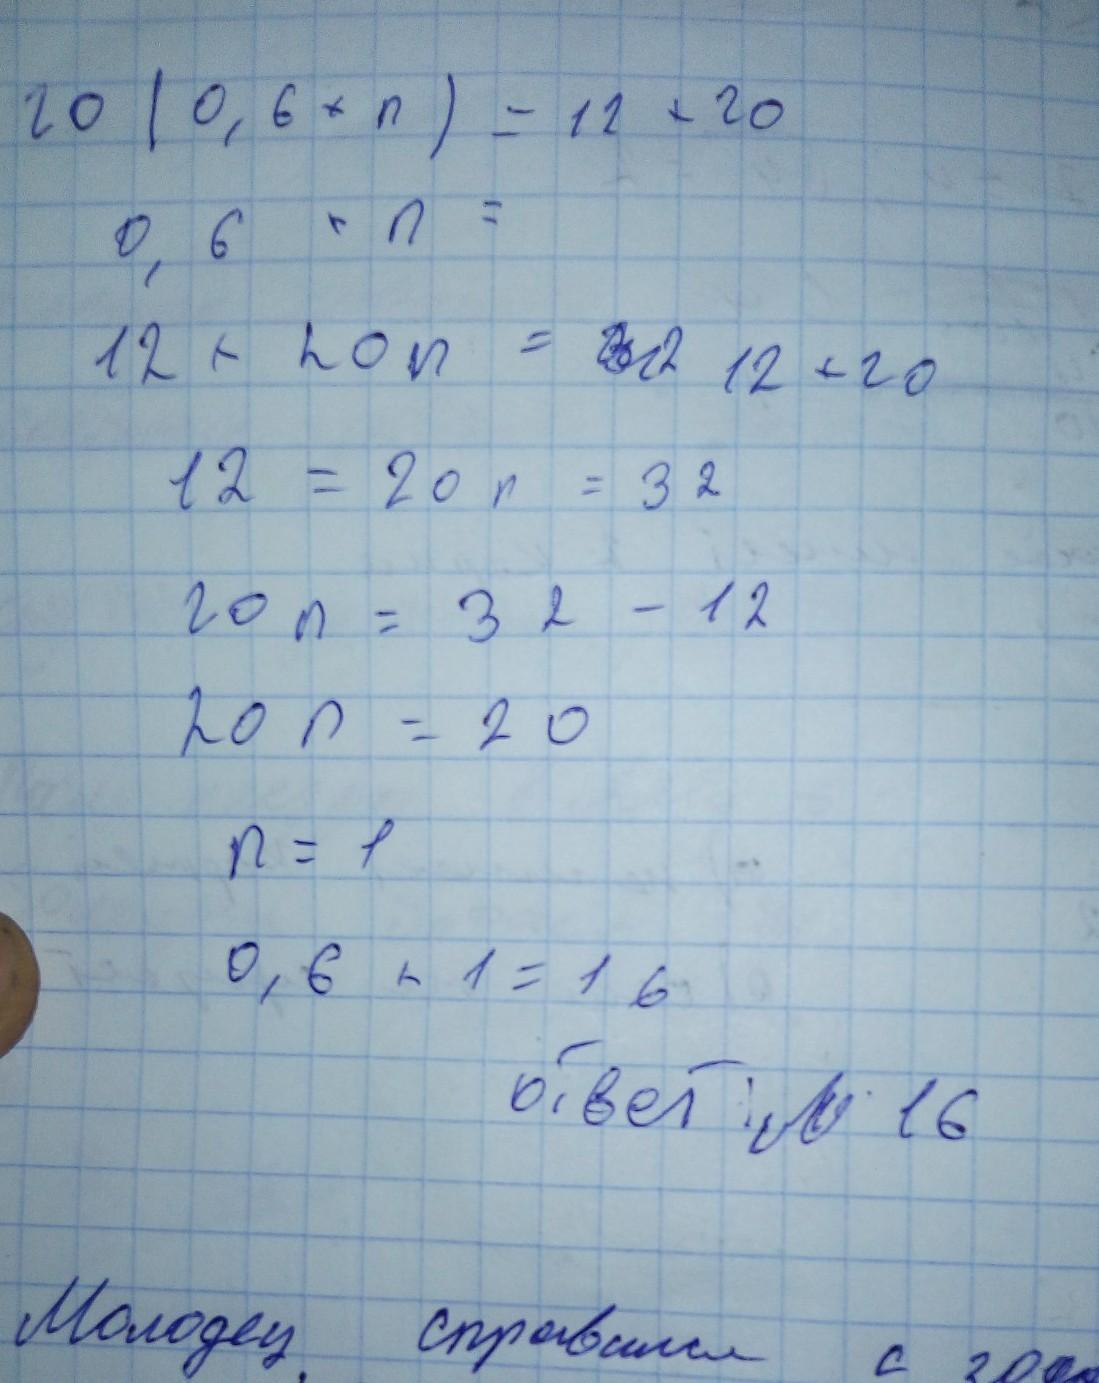 20 (0,6 + n) = 12 + 20
0,6 + n =
12 + 20n = 12 + 20
12 = 20n = 32
20n = 32 - 12
20n = 20
n = 1
0,6 + 1 = 16
ответ: 16
Молодец, справился с